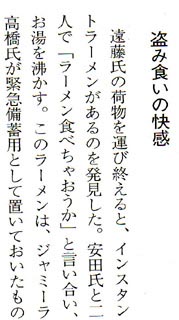 盗み食いの快感
遠藤氏の荷物を運び終えると、インスタン
トラーメンがあるのを発見した。安田氏と二
人で「ラーメン食べちゃおうか」と言い合い、
お湯を沸かす。このラーメンは、ジャミーラ
高橋氏が緊急備蓄用として置いておいたもの